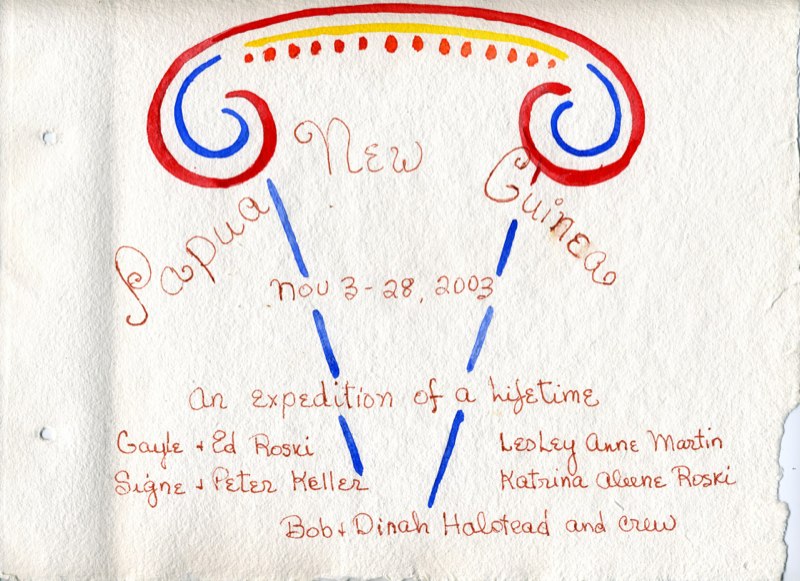 Papua New Guinea
Nov 3-28, 2003
An expedition of a Lifetime
Gayle + Ed Roski
Signe + Peter Keller
Lesley Anne Martin
Katrina Aleene Roski
Bob + Dinah Halstead and crew